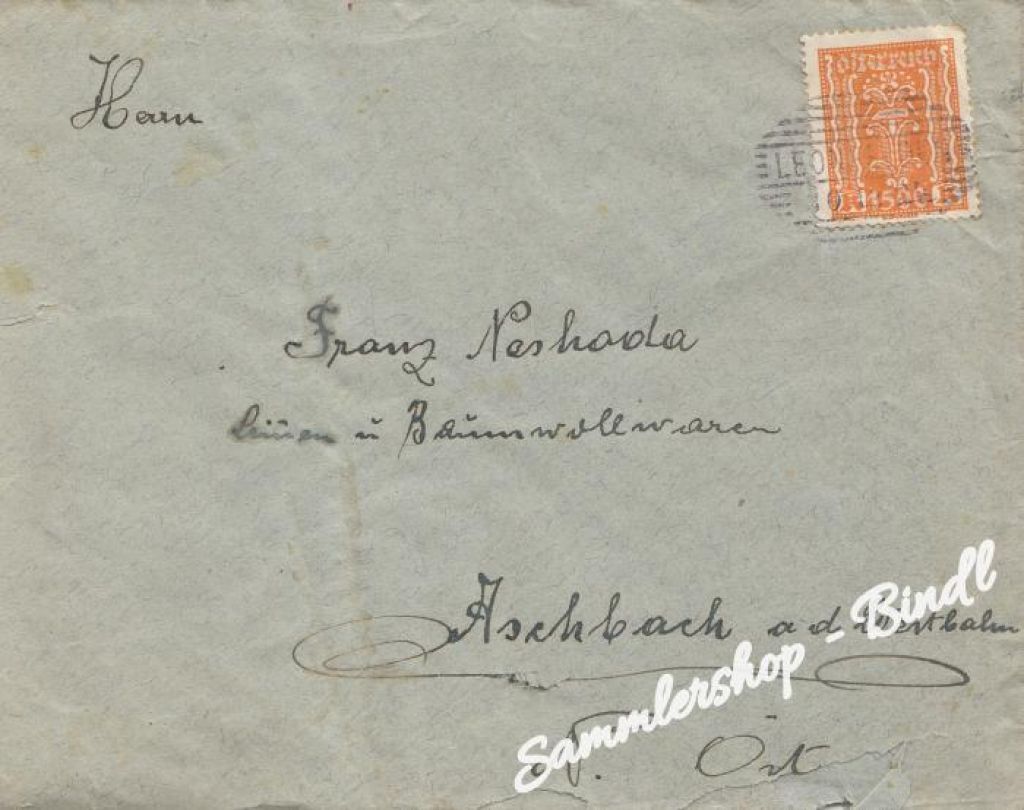 Herrn
Österreich
LEO
1500
Franz Neshoda
Linnen u Baumwollwaren
Aschbach a d Westbahn
N. Öst
Sammlershop - Bindl